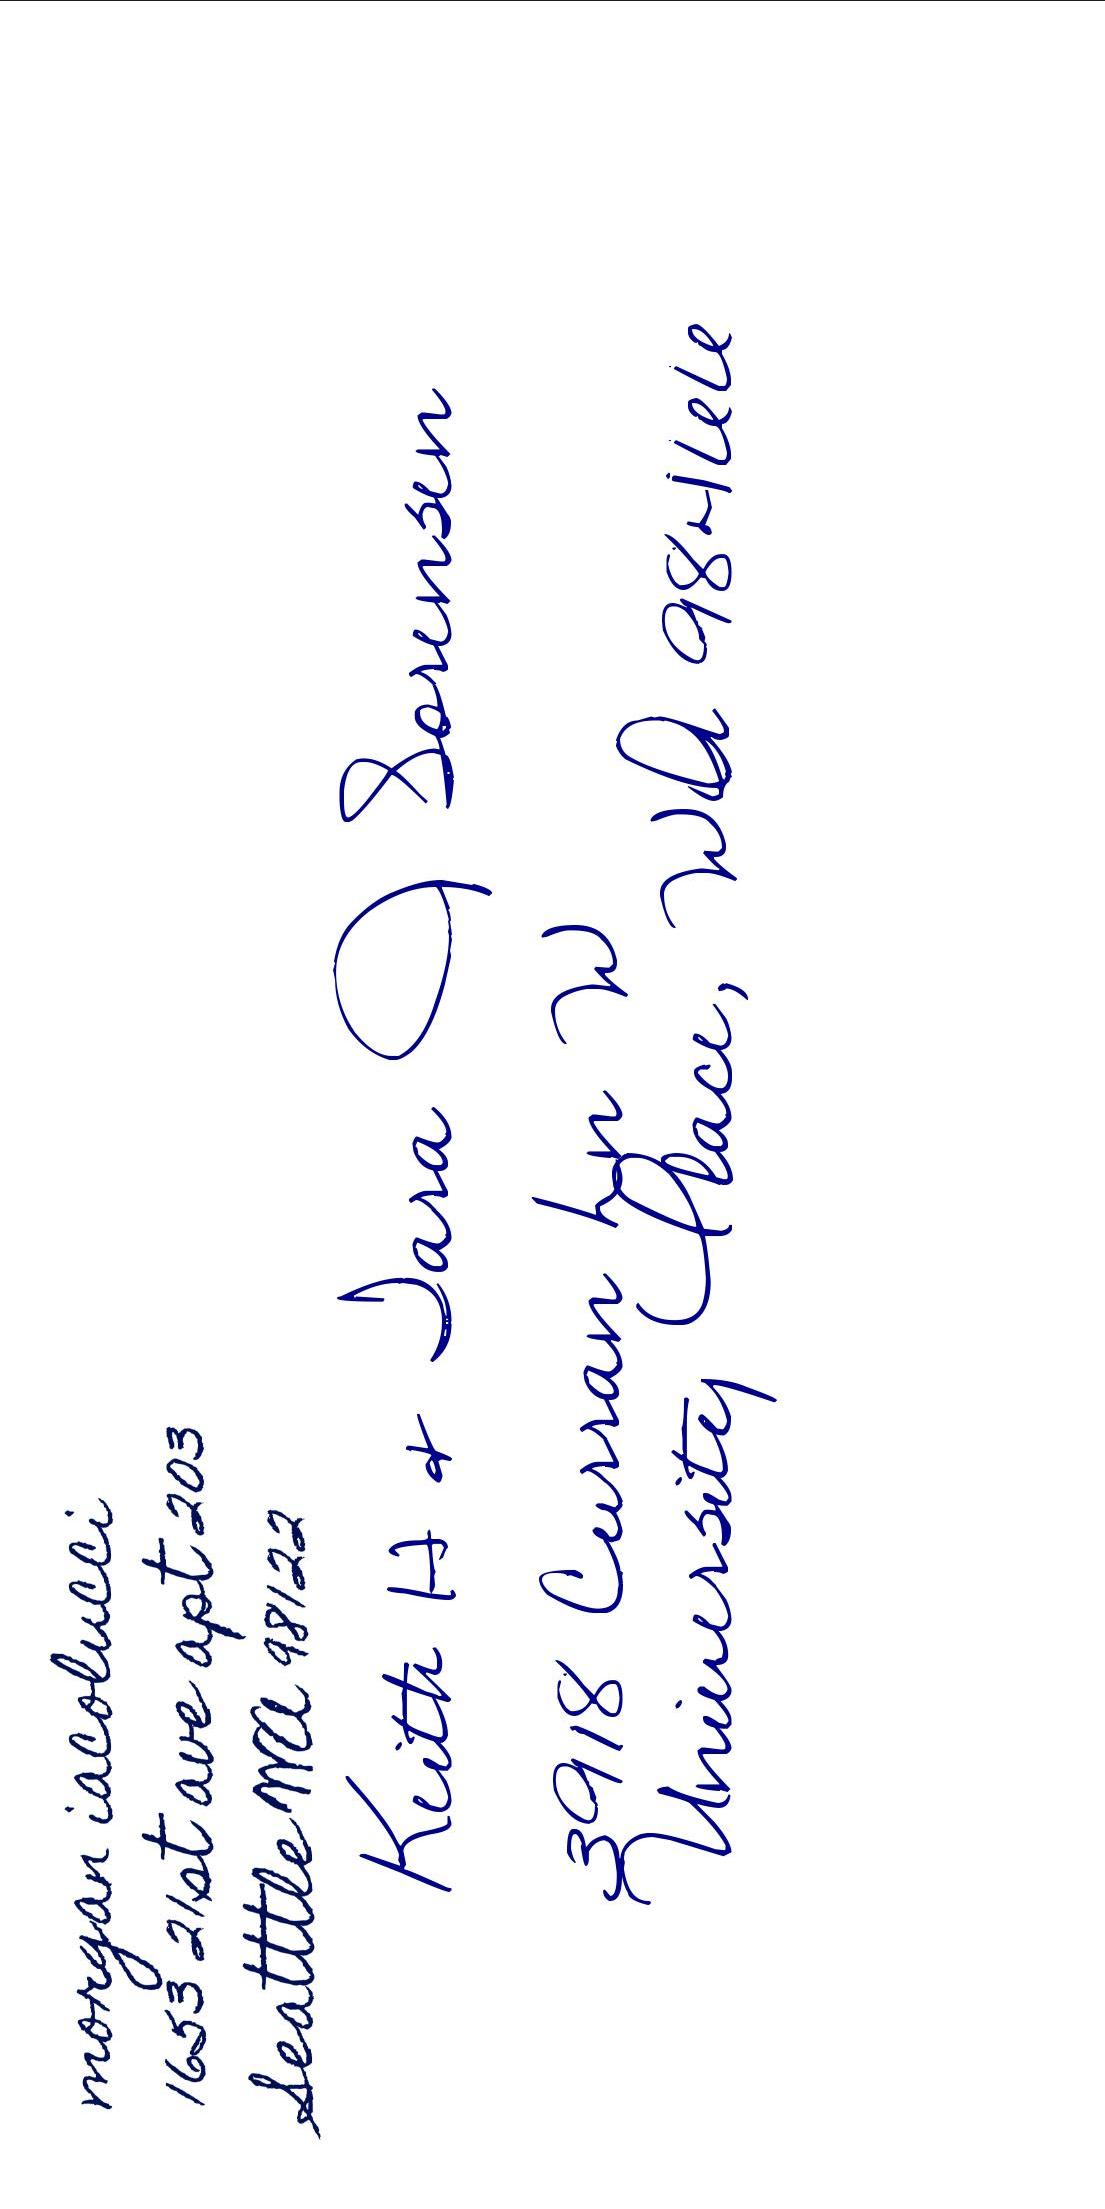 morgan iacolucci
1653 21st ave apt 203
Seattle WA 98122
Keith H & Tara J Sorensen
3918 Curran Ln W
University Place, WA 98466